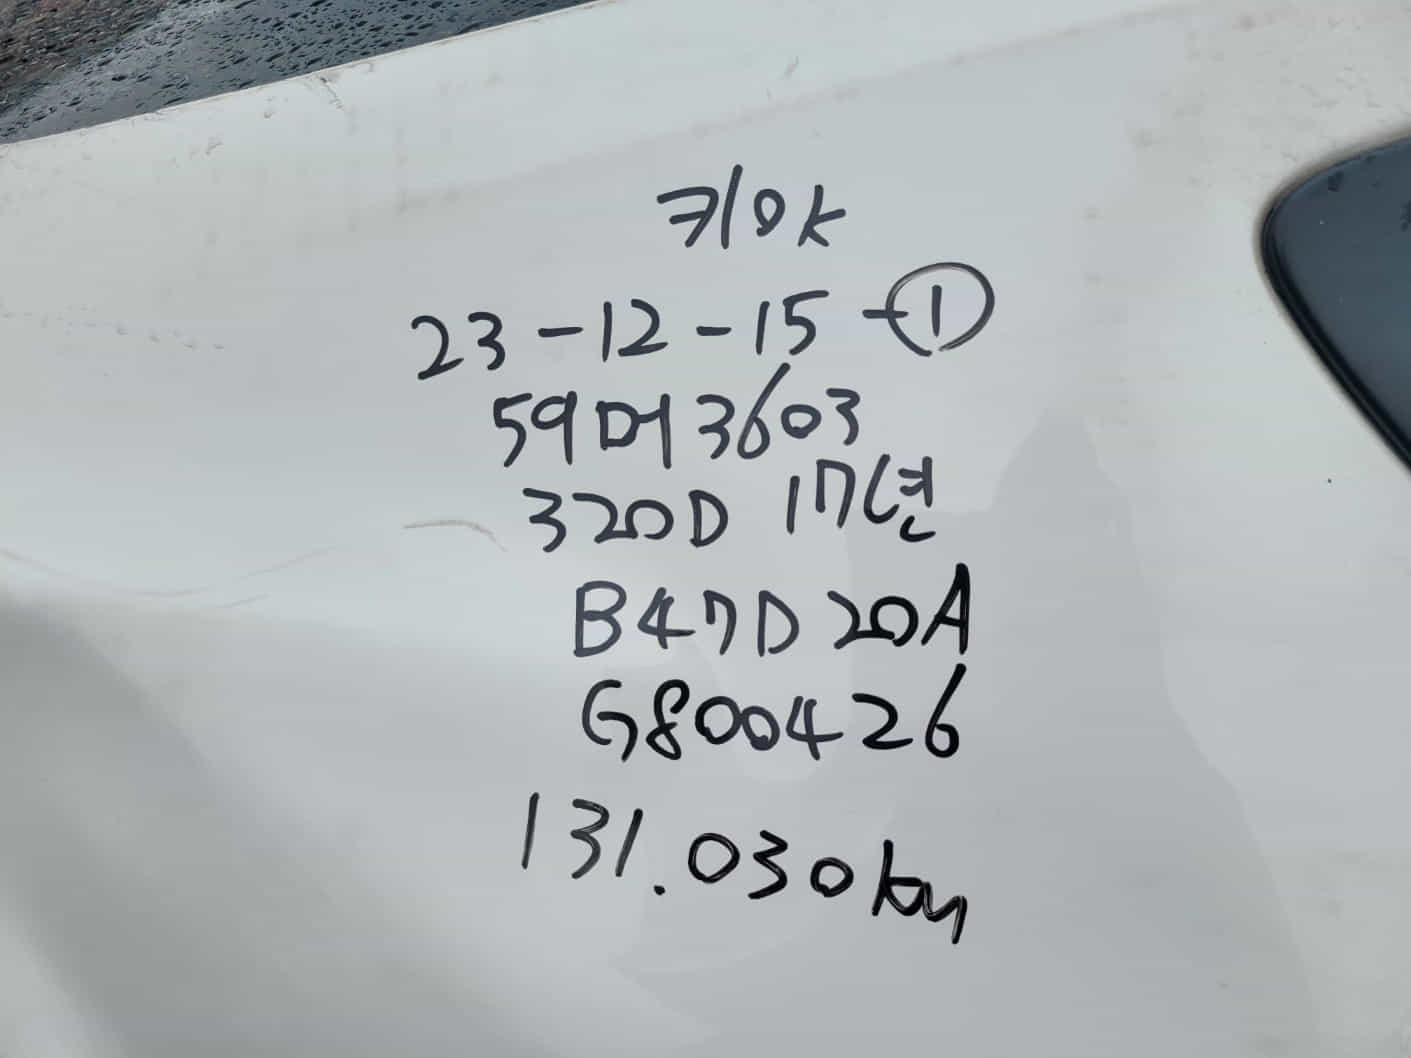 키ok
23-12-15-①
59머3603
320D 17년
B47D20A
G800426
131.030km